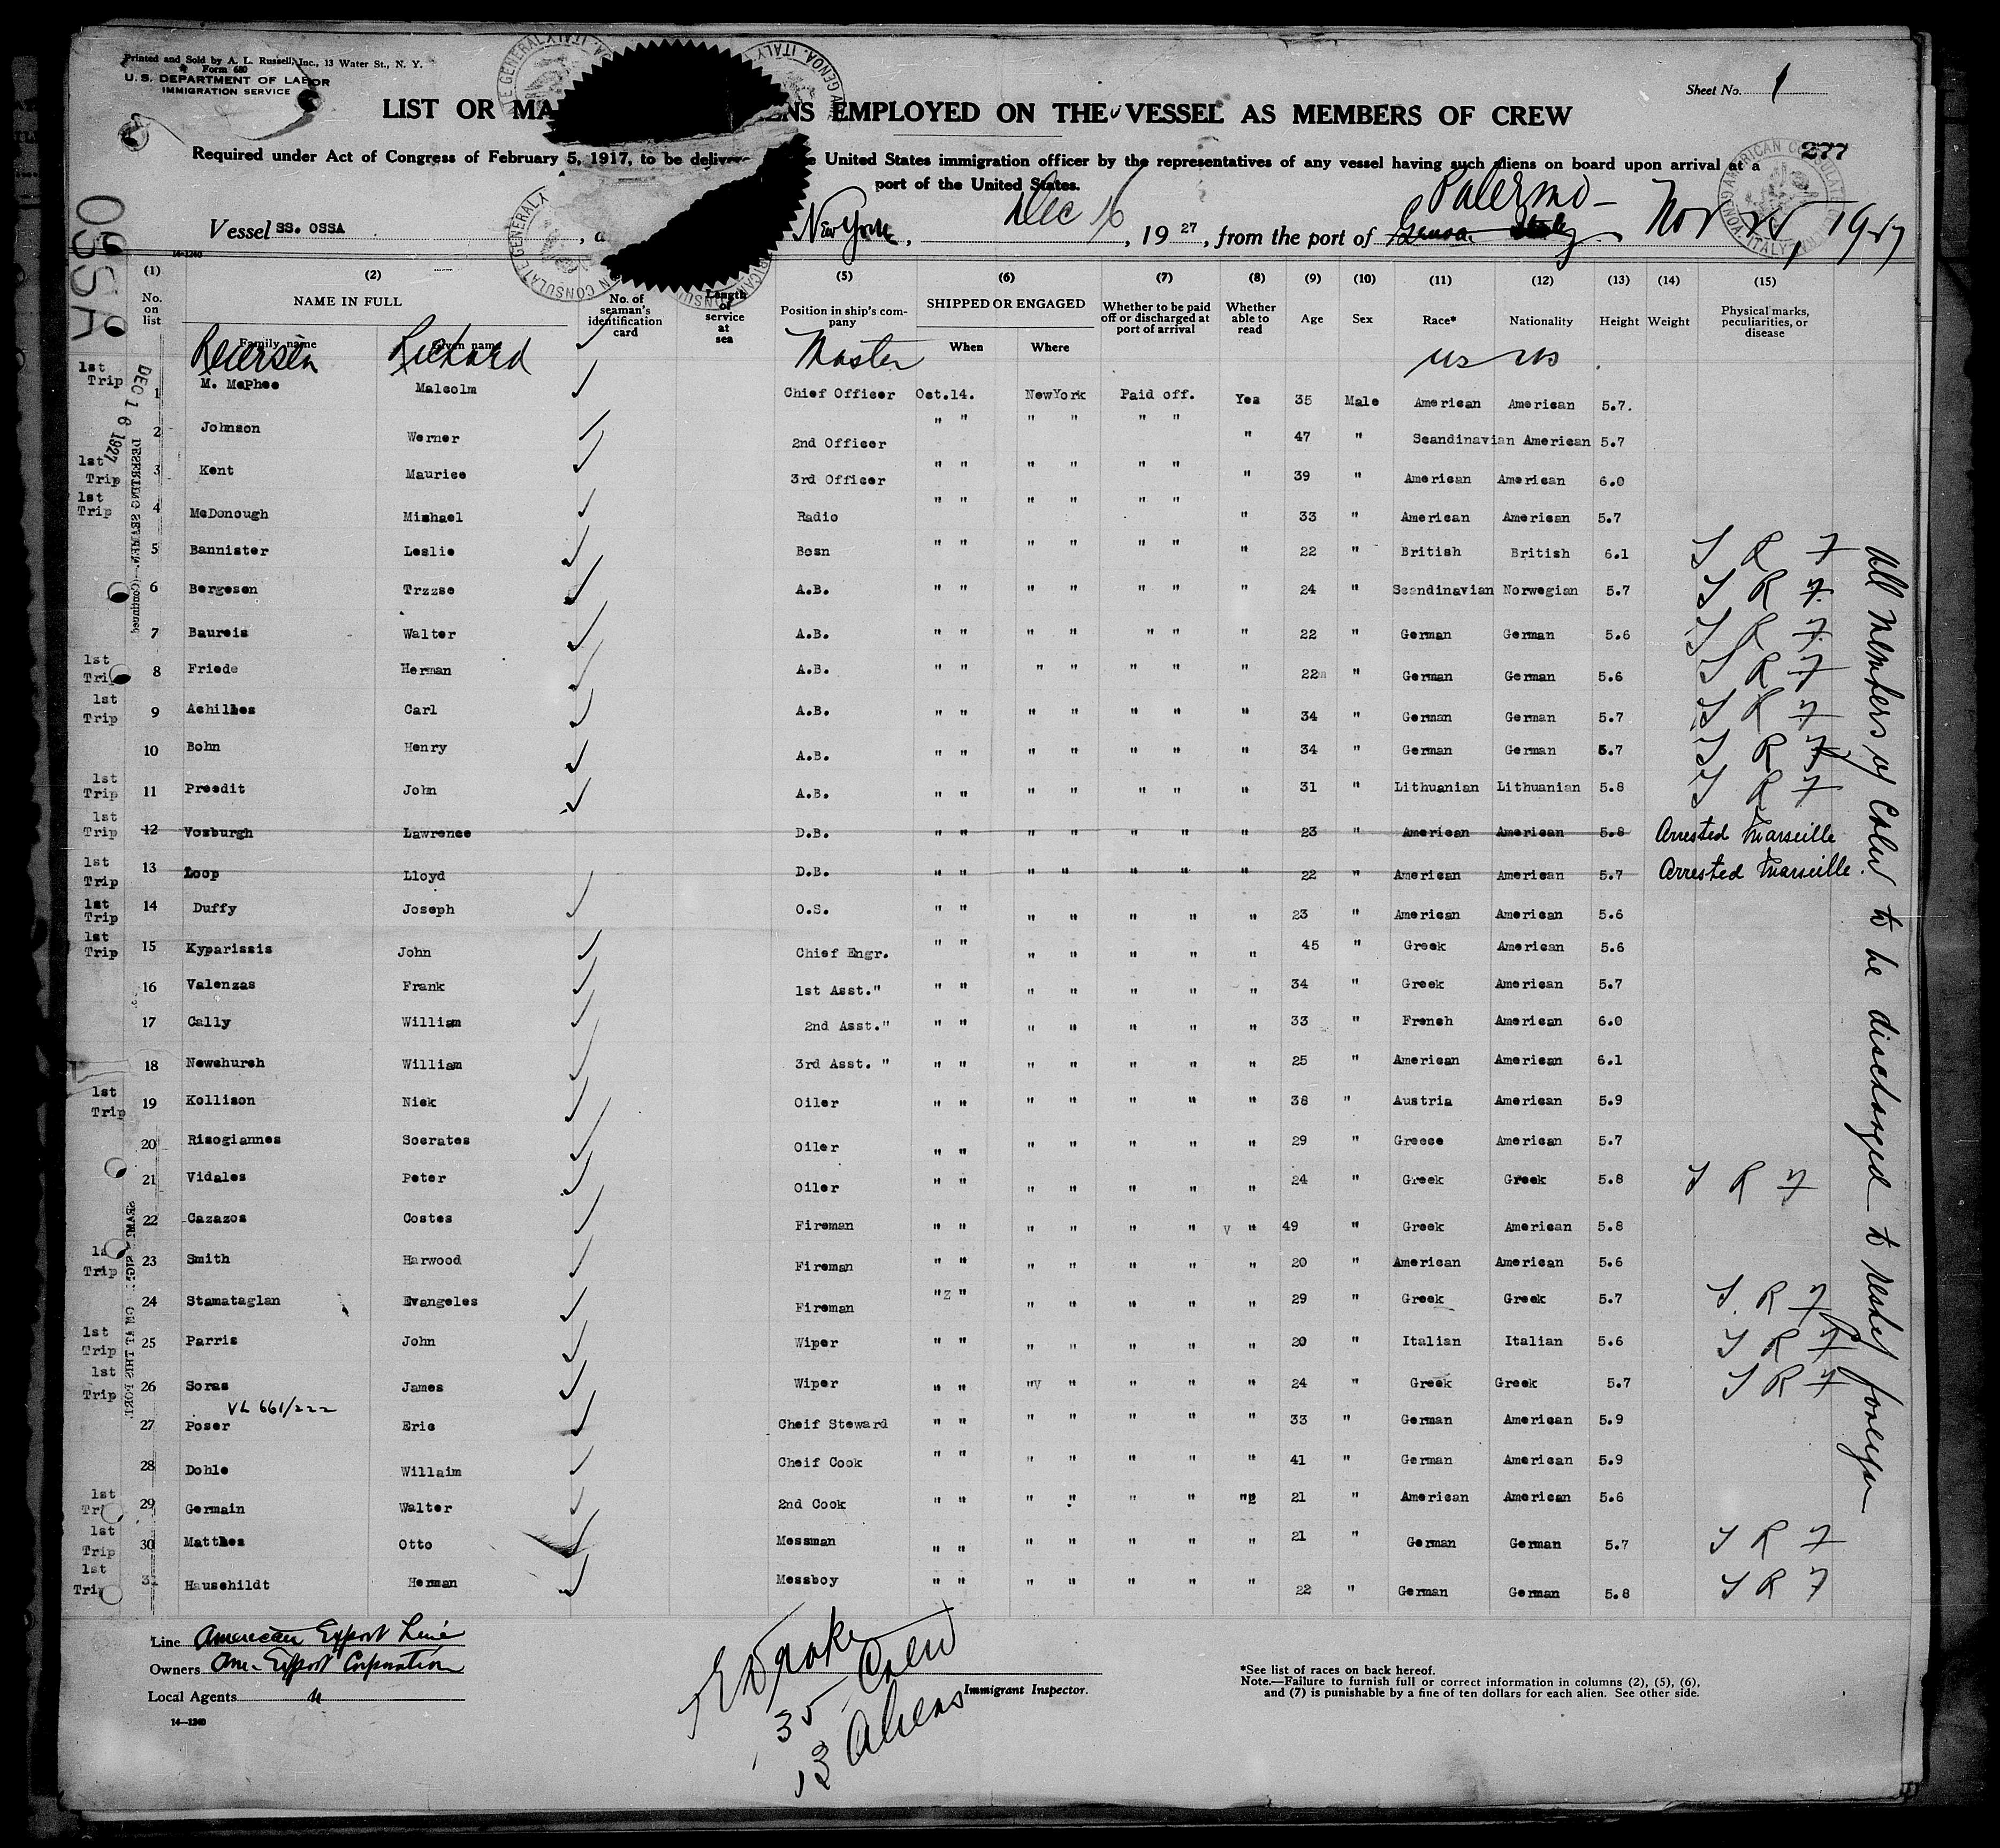 Printed and Sold by A. L. Russell, Inc., 13 Water St., N. Y.
Form 680
U. S. DEPARTMENT OF LABOR
IMMIGRATION SERVICE
Sheet No. 1
LIST OR MA ENS EMPLOYED ON THE VESSEL AS MEMBERS OF CREW
277
Required under Act of Congress of February 5, 1917, to be deliver e United States immigration officer by the representatives of any vessel having such aliens on board upon arrival at a
port of the United States.
Vessel SS. OSSA, a New York, Dec 16, 1927, from the port of Genoa Italy Palermo - Nov 1927
OSSA
14-1240
(1) (2) (5) (6) (7) (8) (9) (10) (11) (12) (13) (14) (15)
No. on list NAME IN FULL No. of seaman's identification card Length of service at sea Position in ship's company SHIPPED OR ENGAGED Whether to be paid off or discharged at port of arrival Whether able to read Age Sex Race* Nationality Height Weight Physical marks, peculiarities, or disease
Family name Given name When Where
Petersen Richard Master US US
1st Trip 1 M. McPhee Malcolm Chief Officer Oct.14. NewYork Paid off. Yes 35 Male American American 5.7.
2 Johnson Werner 2nd Officer " " " " " " " 47 " Scandinavian American 5.7
1st Trip 3 Kent Maurice 3rd Officer " " " " " " " 39 " American American 6.0
1st Trip 4 McDonough Mishael Radio " " " " " " " 33 " American American 5.7
5 Bannister Leslie Bosn " " " " " " " 22 " British British 6.1 S R F
6 Bergesen Trzzse A.B. " " " " " " " 24 " Scandinavian Norwegian 5.7 S R F
7 Baureis Walter A.B. " " " " " " " 22 " German German 5.6 S R F
1st Trip 8 Friede Herman A.B. " " " " " " " 22 " German German 5.6 S R F
1st Trip 9 Achilles Carl A.B. " " " " " " " 34 " German German 5.7 S R F
10 Bohn Henry A.B. " " " " " " " 34 " German German 5.7 S R F
1st Trip 11 Preedit John A.B. " " " " " " " 31 " Lithuanian Lithuanian 5.8 S R F
1st Trip 12 Vosburgh Lawrence D.B. " " " " " " " 23 " American American 5.8 Arrested Marseille
1st Trip 13 Loop Lloyd D.B. " " " " " " " 22 " American American 5.7 Arrested Marseille.
1st Trip 14 Duffy Joseph O.S. " " " " " " " 23 " American American 5.6
1st Trip 15 Kyparissis John Chief Engr. " " " " " " " 45 " Greek American 5.6
16 Valenzas Frank 1st Asst." " " " " " " " 34 " Greek American 5.7
17 Cally William 2nd Asst." " " " " " " " 33 " French American 6.0
18 Newchurch William 3rd Asst. " " " " " " " " 25 " American American 6.1
1st Trip 19 Kollison Nick Oiler " " " " " " " 38 " Austria American 5.9
20 Risogiannes Socrates Oiler " " " " " " " 29 " Greece American 5.7
21 Vidales Peter Oiler " " " " " " " 24 " Greek Greek 5.8 S R F
22 Cazazos Costes Fireman " " " " " " v " 49 " Greek American 5.8
1st Trip 23 Smith Harwood Fireman " " " " " " " 20 " American American 5.6
24 Stamataglan Evangeles Fireman "z " " " " " " 29 " Greek Greek 5.7 S. R F
1st Trip 25 Parris John Wiper " " " " " " " 20 " Italian Italian 5.6 S R F
1st Trip 26 Soras James Wiper " " "v " " " " 24 " Greek Greek 5.7 S R F
VL 661/222
27 Poser Eric Cheif Steward " " " " " " " 33 " German American 5.9
28 Dohle Willaim Cheif Cook " " " " " " " 41 " German American 5.9
1st Trip 29 Germain Walter 2nd Cook " " " " " " " 21 " American American 5.6
1st Trip 30 Matthes Otto Messman " " " " " " " 21 " German German 5.7 S R F
1st Trip 31 Hauschildt Herman Messboy " " " " " " " 22 " German German 5.8 S R F
DEC 16 1927
All Members of Crew to be discharged to reship foreign
Line American Export Line
Owners Am. Export Corporation
Local Agents "
14-1240
35 Crew
13 Aliens
Immigrant Inspector.
*See list of races on back hereof.
Note.—Failure to furnish full or correct information in columns (2), (5), (6),
and (7) is punishable by a fine of ten dollars for each alien. See other side.